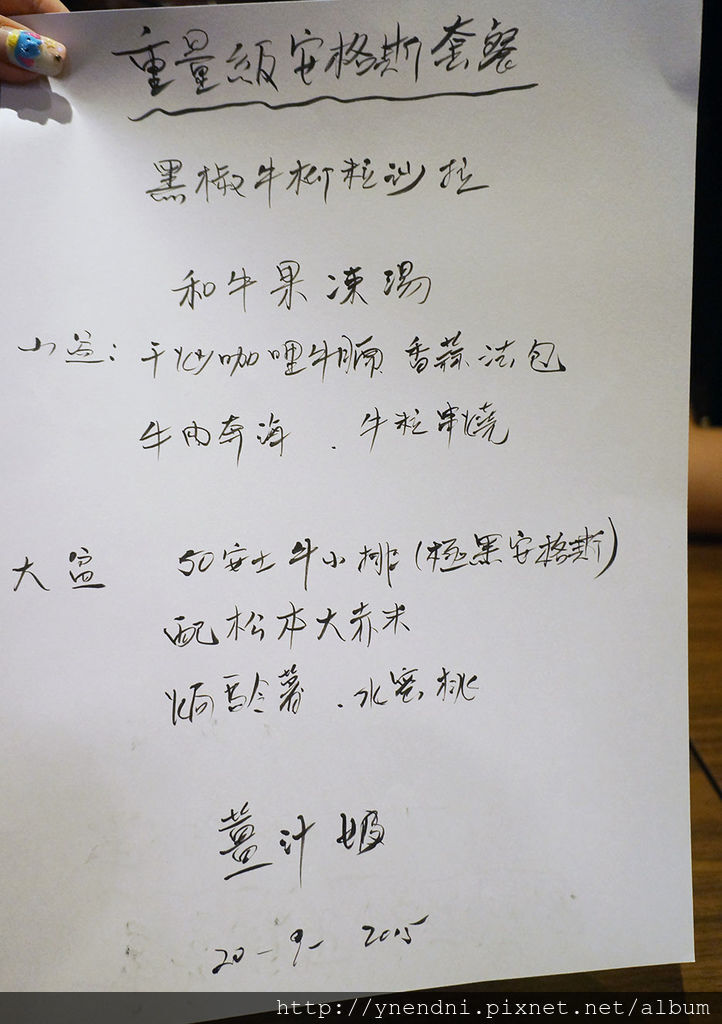 重量級安格斯套餐
黑椒牛柳粒沙拉
和牛果凍湯
小盆: 干炒咖哩牛腩 香蒜法包
牛肉奔海 . 牛粒串燒
大盆 50安士牛小排(極黑安格斯)
配松本大赤米
焗馬鈴薯 . 水蜜桃
薑汁
20-9-2015
http://ynendni.pixnet.net/album